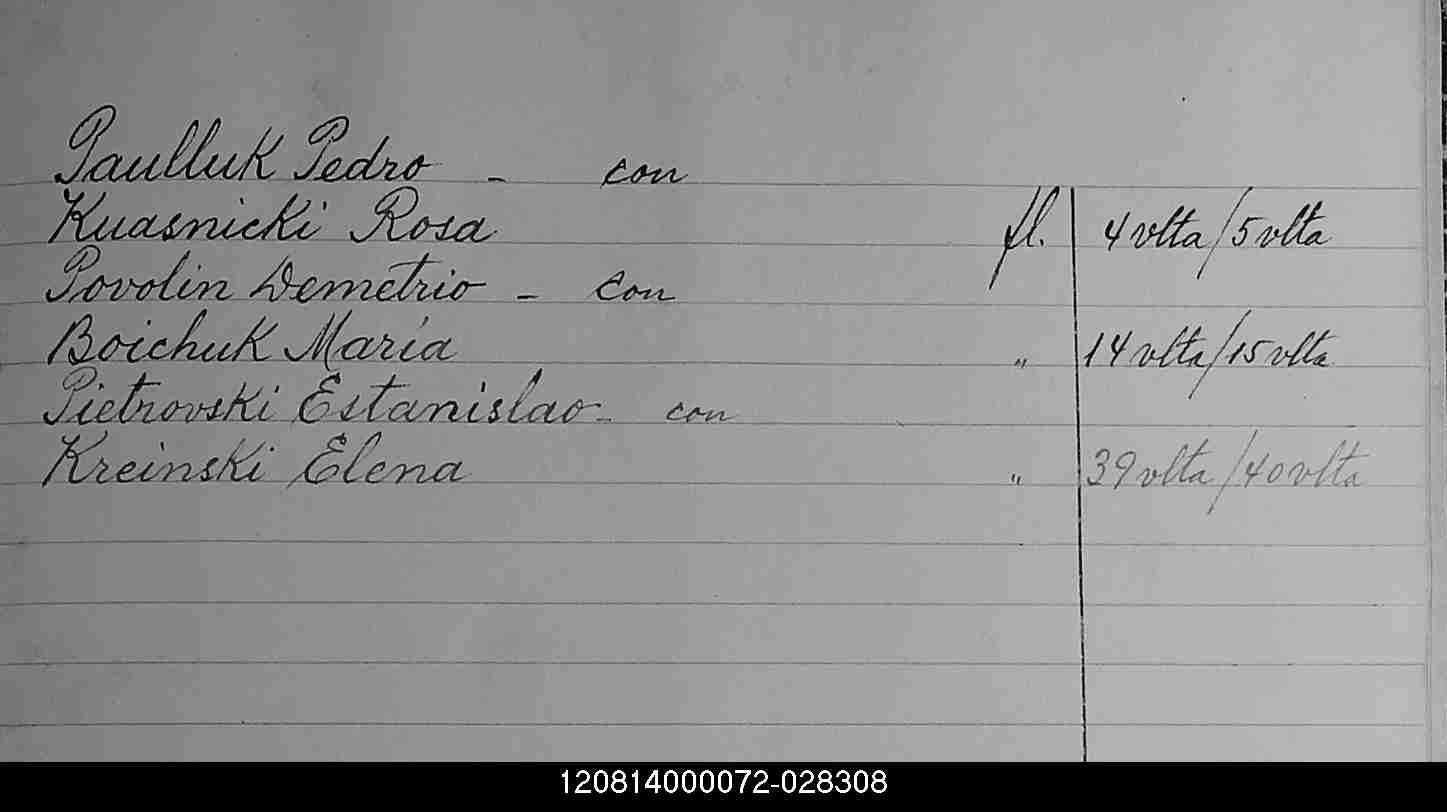 Paulluk Pedro - con
Kuasnicki Rosa fl. 4 vlta/5 vlta
Povolin Demetrio - con
Boichuk María " 14 vlta/15 vlta
Pietrovski Estanislao - con
Kreinski Elena " 39 vlta/40 vlta
120814000072-028308